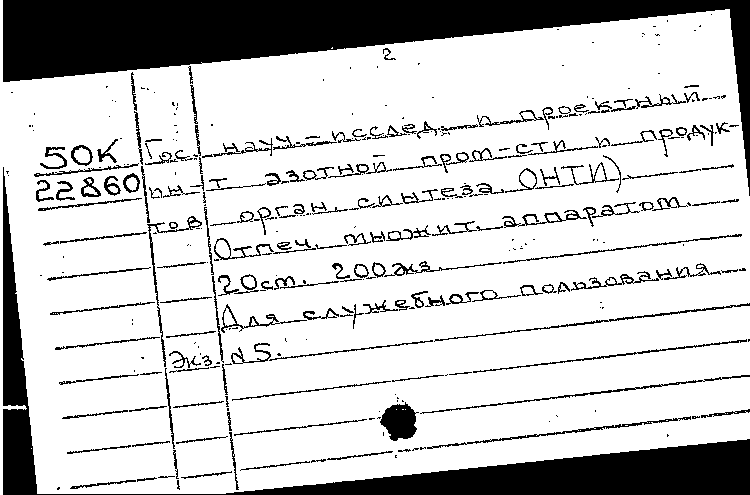 2
50К Гос. науч.-исслед. и проектный
22860 ин-т азотной пром-сти и продук-
тов орган. синтеза. ОНТИ).
Отпеч. множит. аппаратом.
20ст. 200экз.
Для служебного пользования
Экз. №5.